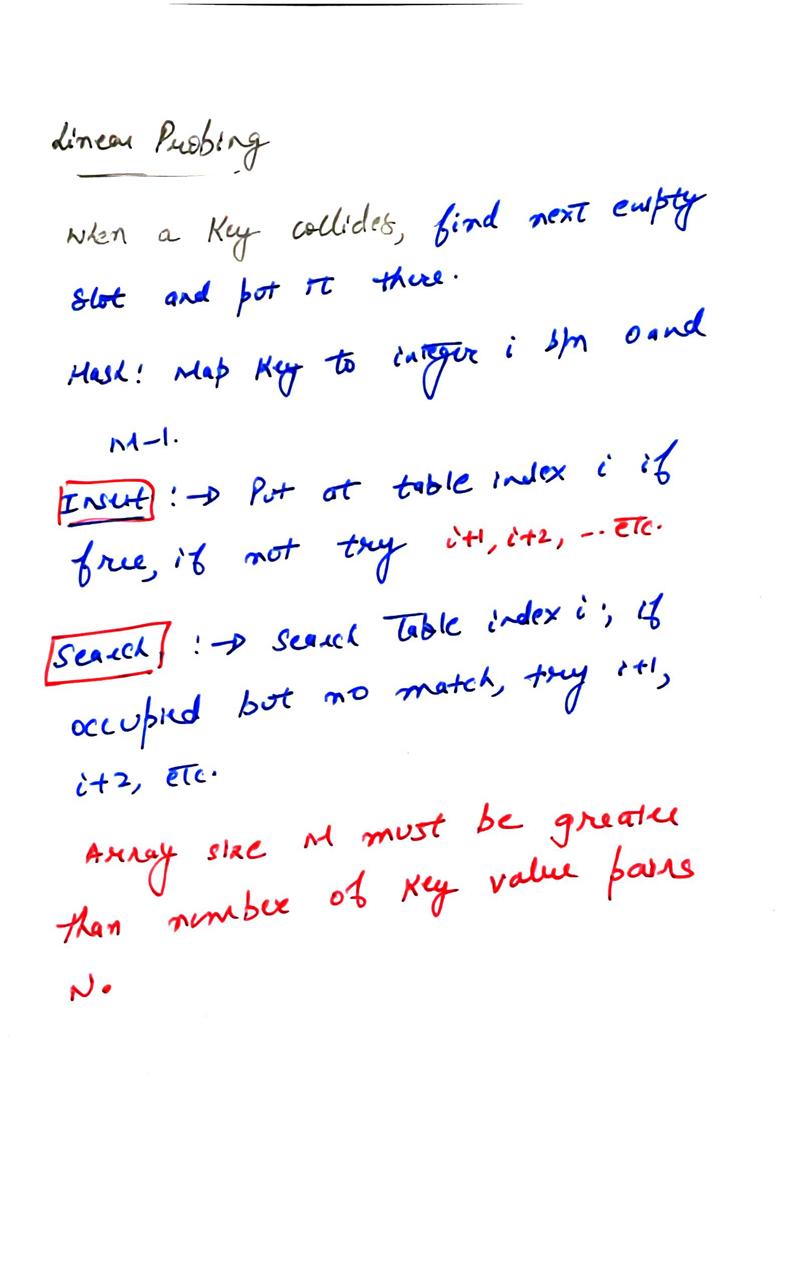 Linear Probing
When a Key collides, find next empty
slot and put it there.
Hash: Map Key to integer i b/n 0 and
M-1.
Insert :→ Put at table index i if
free, if not try i+1, i+2, ... etc.
Search :→ Search Table index i; if
occupied but no match, try i+1,
i+2, etc.
Array size M must be greater
than number of Key value pairs
N.